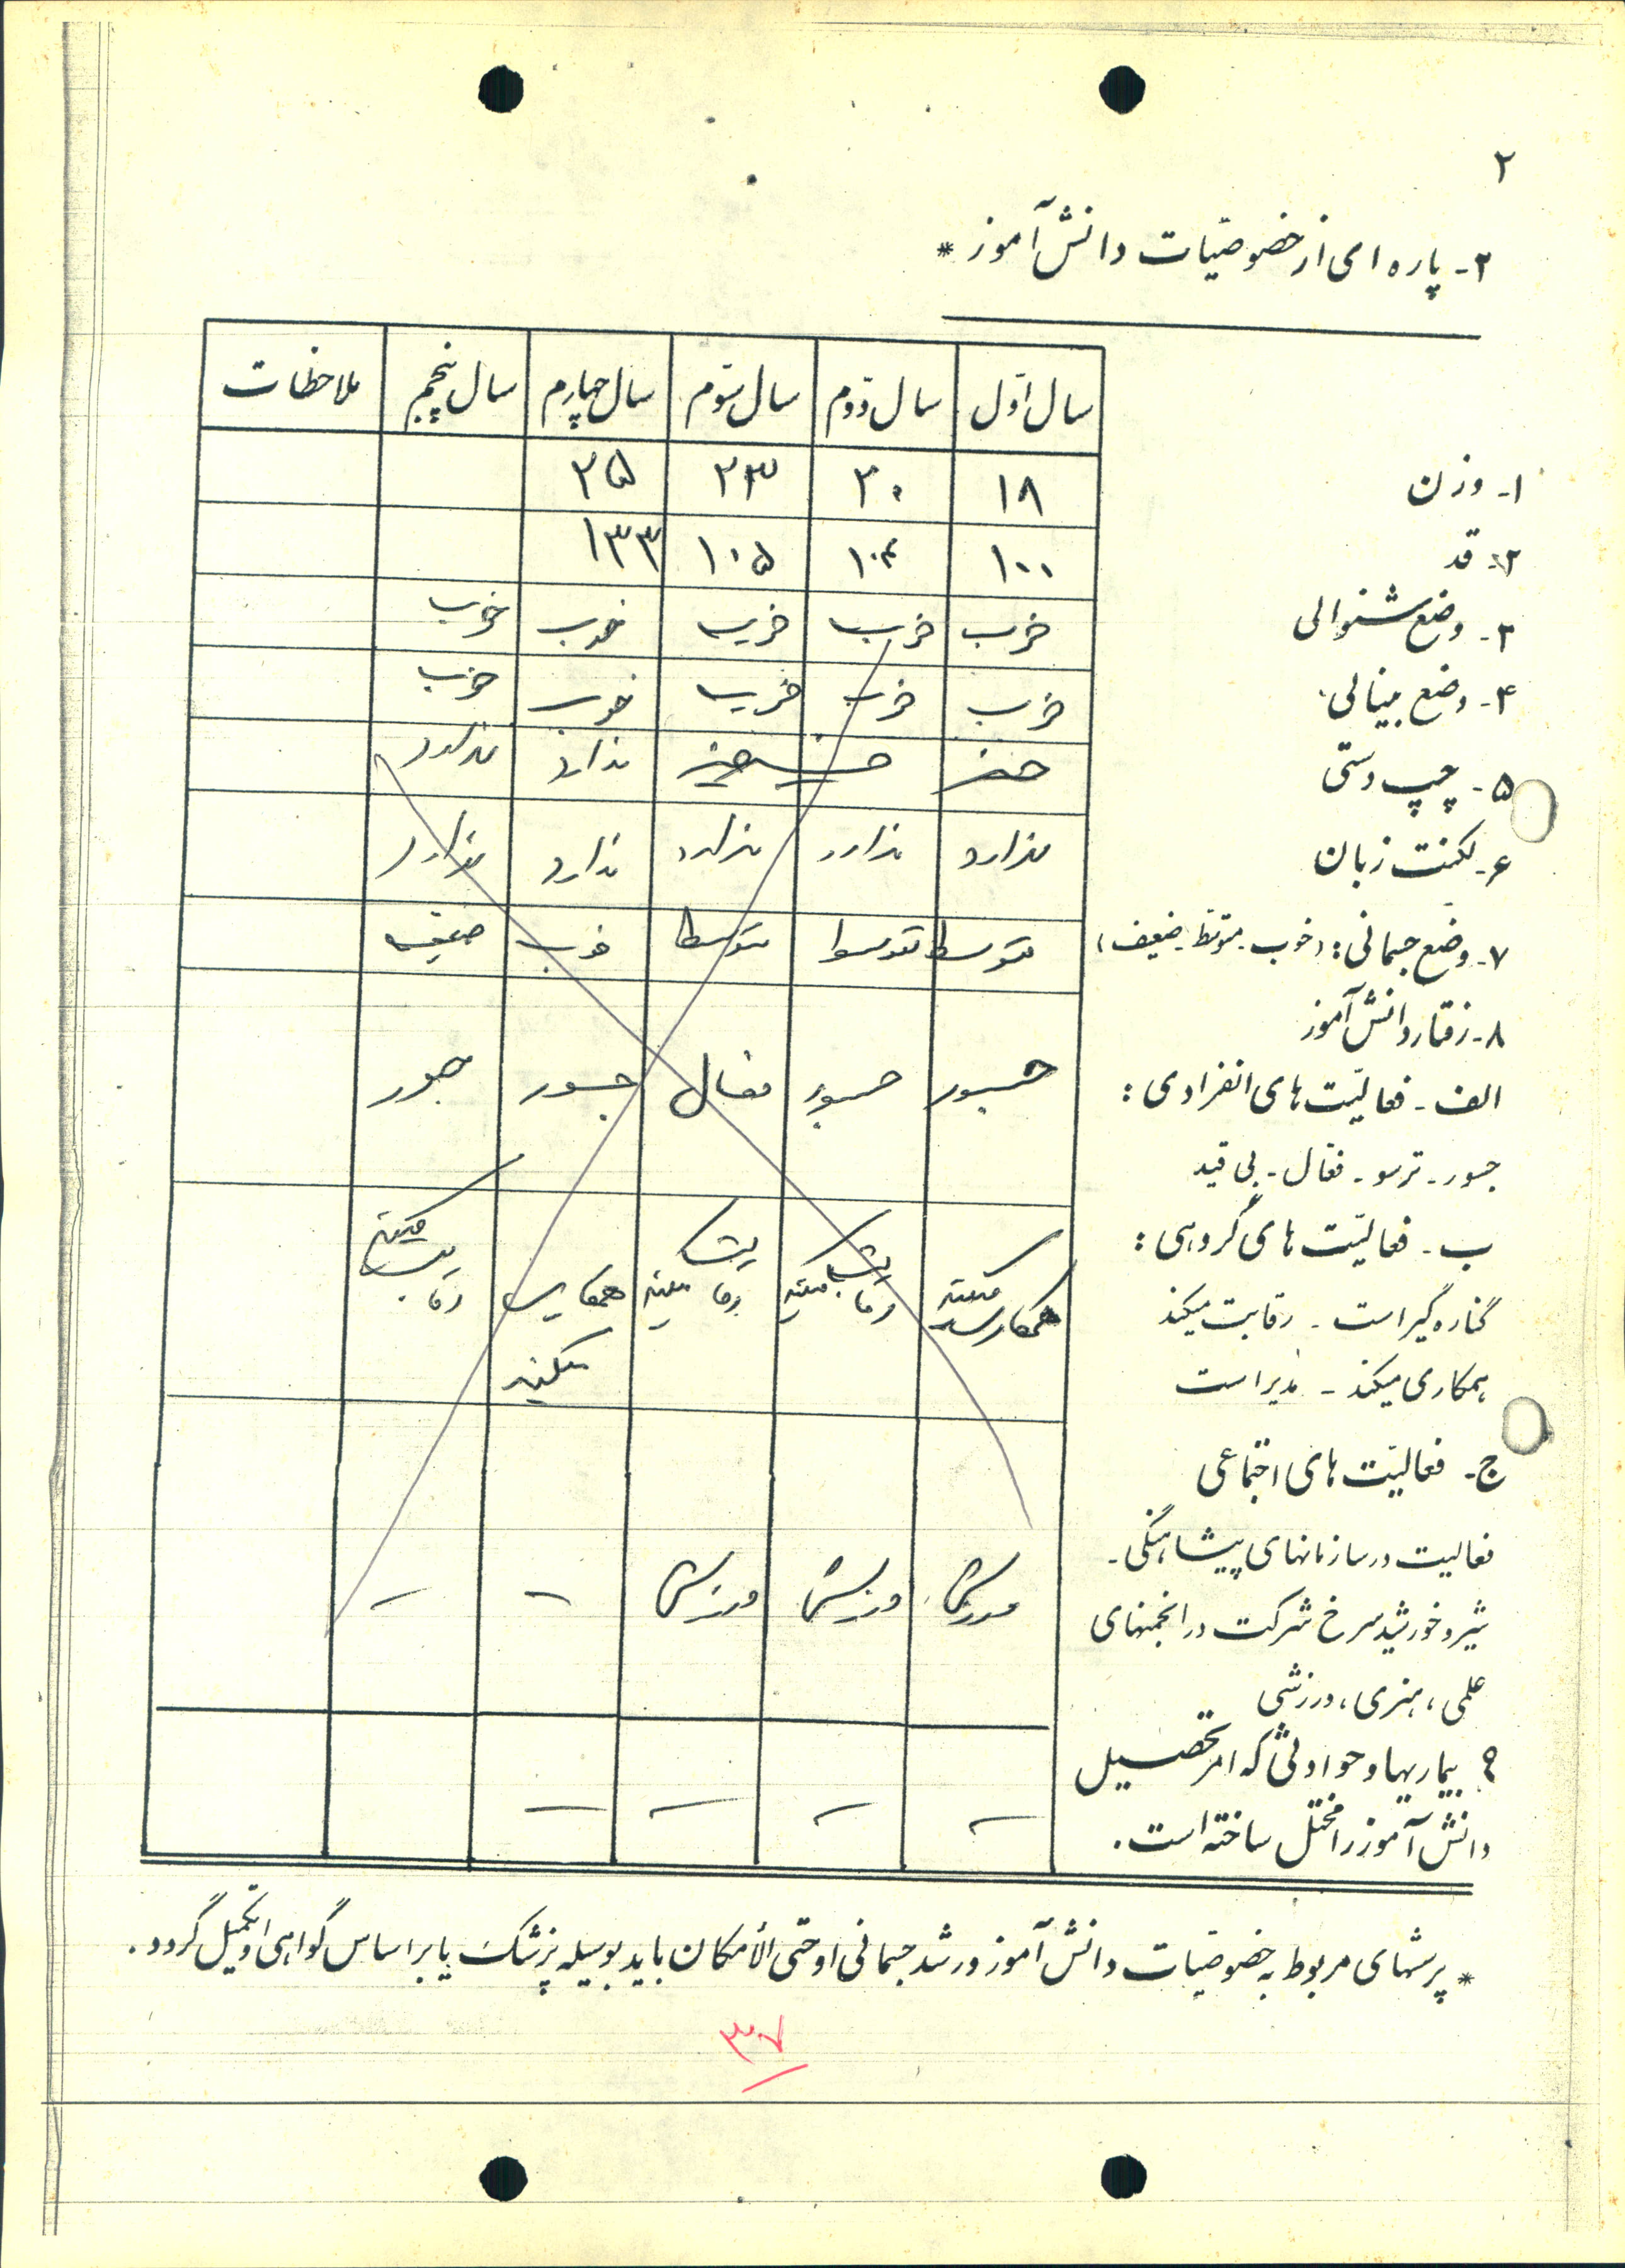 ۲
۲- پاره ای از خصوصیّات دانش آموز *
سال اوّل سال دوّم سال سوّم سال چهارم سال پنجم ملاحظات
۱- وزن ۱۸ ۲۰ ۲۳ ۲۵
۲- قد ۱۰۰ ۱۰۴ ۱۰۵ ۱۳۳
۳- وضع شنوائی خوب خوب خوب خوب خوب
۴- وضع بینائی خوب خوب خوب خوب خوب
۵- چپ دستی ندارد ندارد
۶- لکنت زبان ندارد ندارد ندارد ندارد ندارد
۷- وضع جسمانی: (خوب- متوسّط- ضعیف) متوسط متوسط متوسط خوب ضعیف
۸- رفتار دانش آموز
الف- فعالیّت های انفرادی: جسور جسور فعال جسور جسور
جسور- ترسو- فعّال- بی قید
ب- فعالیّت های گروهی:
کناره گیر است- رقابت میکند همکاری میکند رقابت میکند رقابت میکند همکاری میکند رقابت میکند
همکاری میکند- است
ج- فعالیّت های اجتماعی
فعالیت در سازمانهای پیشاهنگی-
شیر و خورشید سرخ شرکت در انجمنهای ورزش ورزش ورزش - -
علمی، هنری، ورزشی
۹ بیماریها و حوادثی که امر تحصیل
دانش آموز را مختل ساخته است. - - - -
* پرسشهای مربوط به خصوصیّات دانش آموز و رشد جسمانی او حتّی الأمکان باید بوسیله پزشک یا بر اساس گواهی او تکمیل گردد.
۳۷